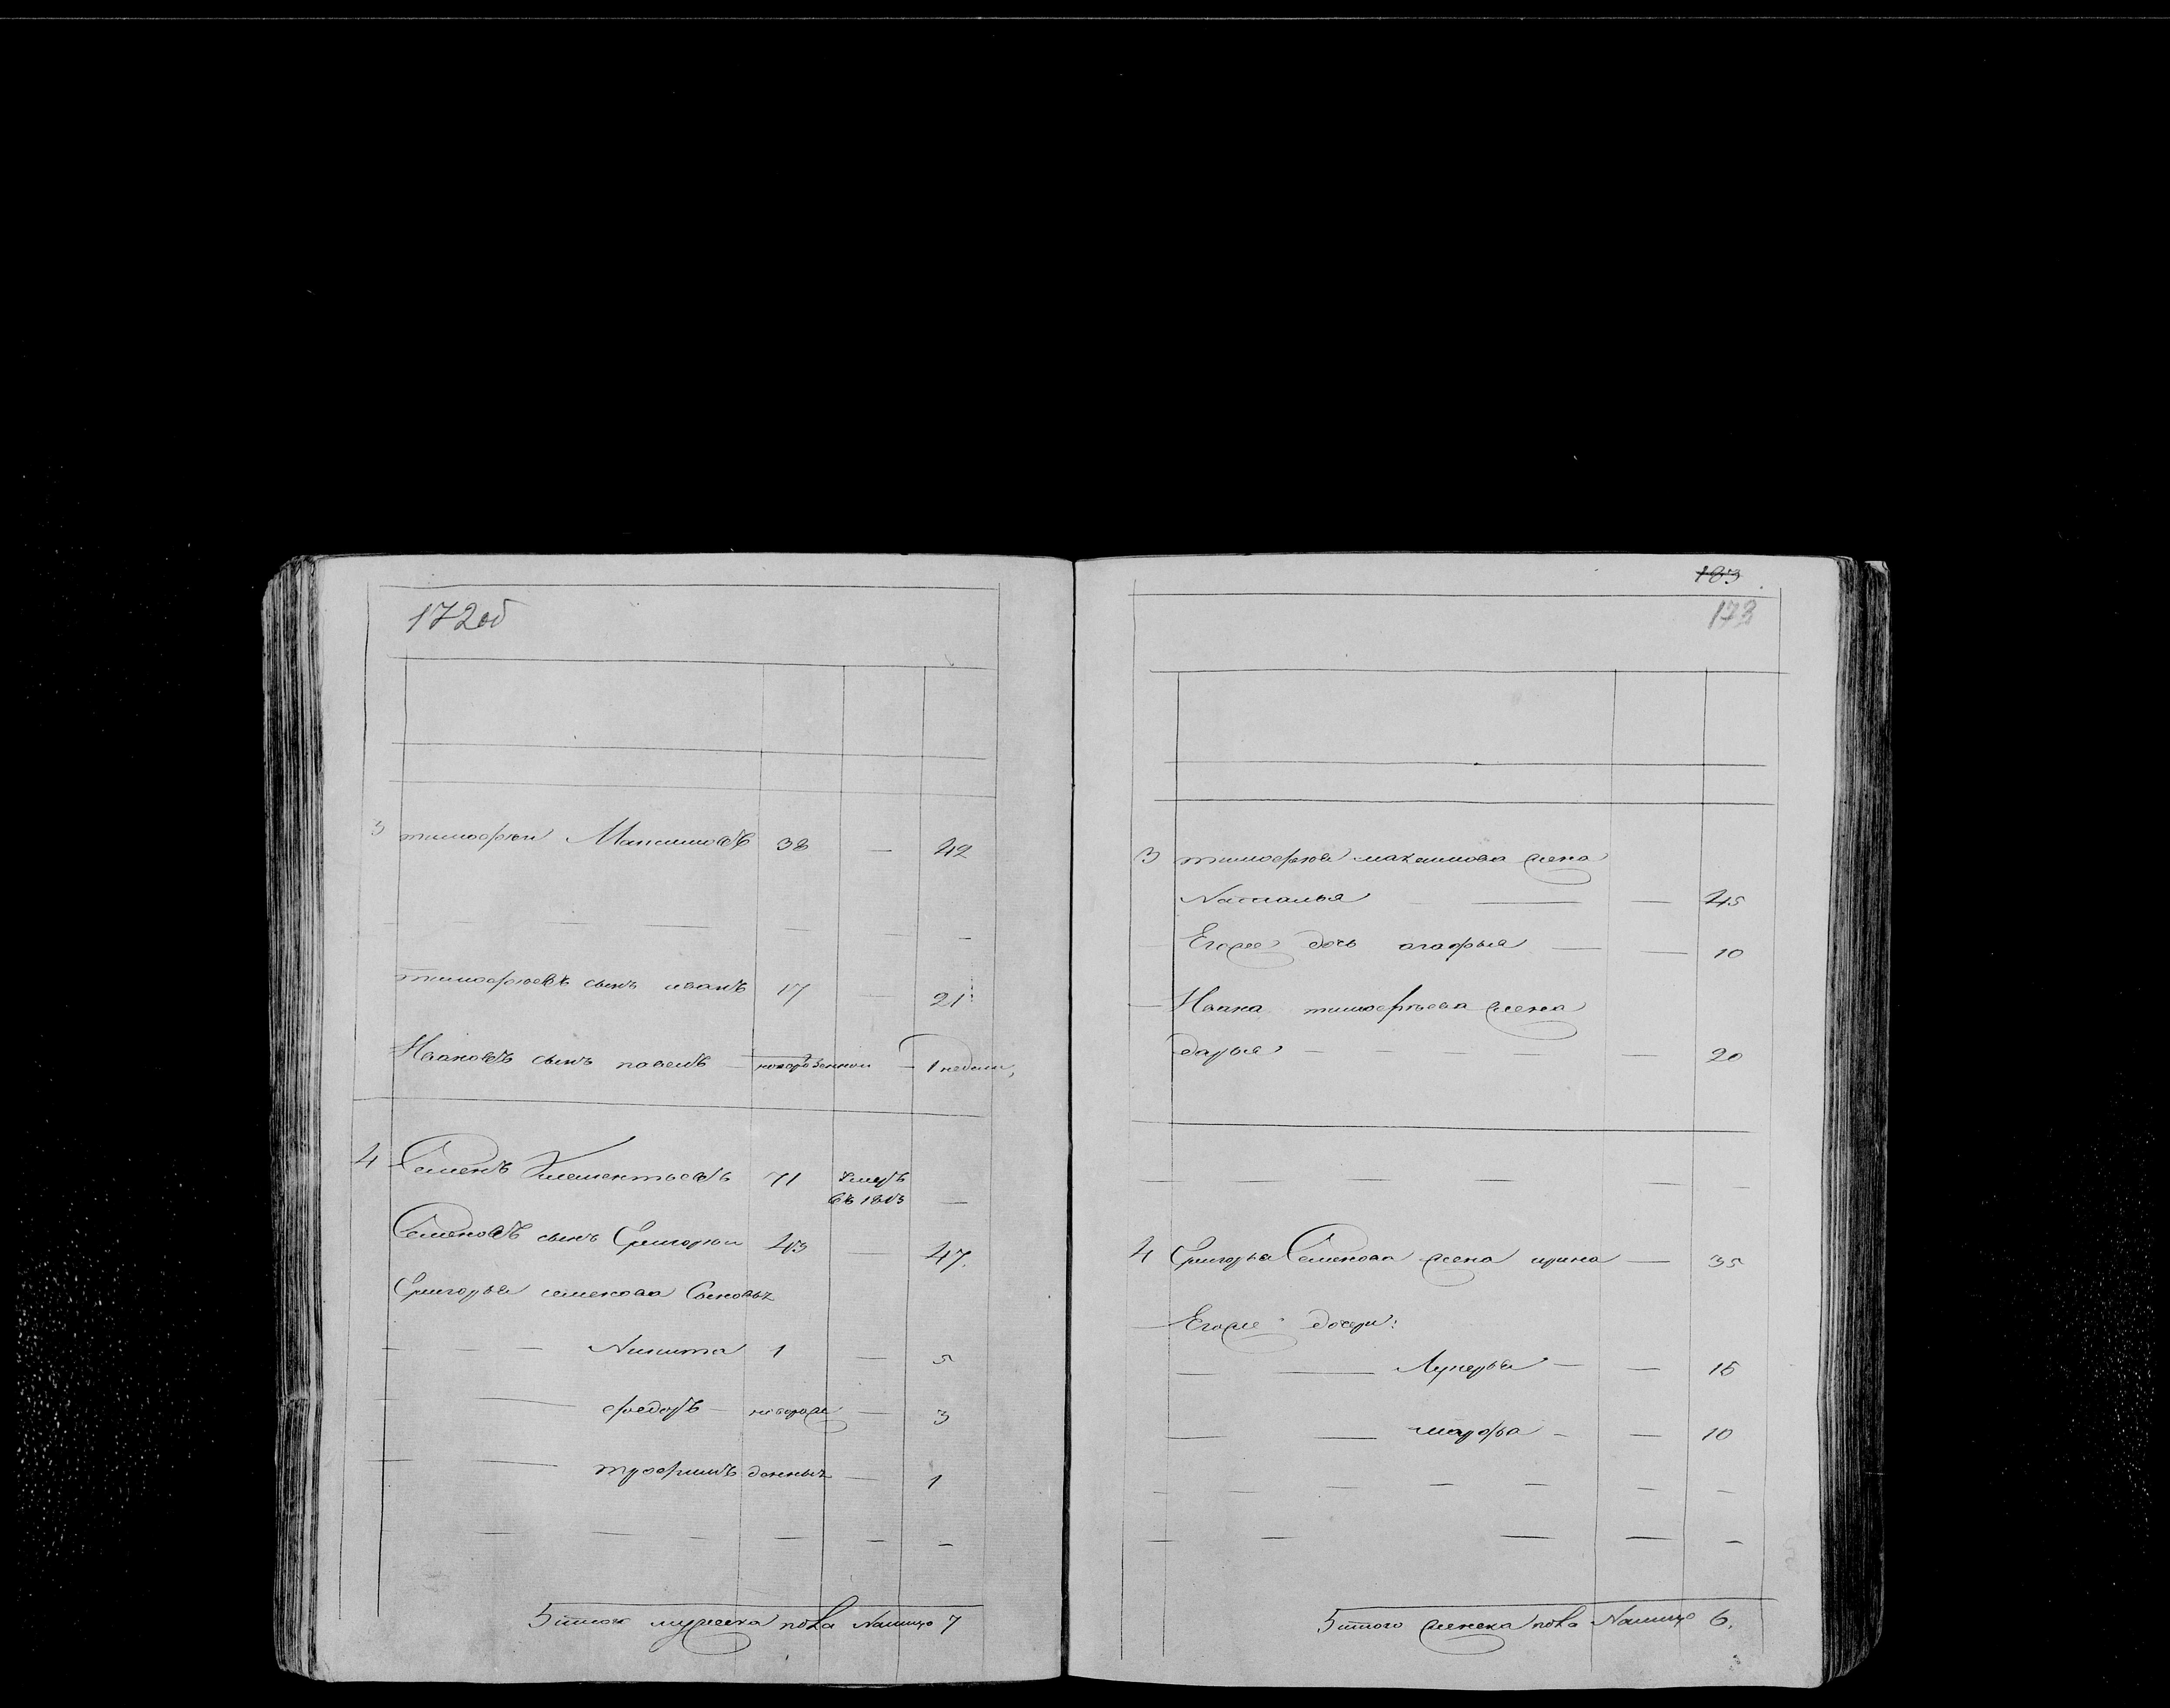 172об
3 тимофеи Максимовъ 38 — 42
тимофеевъ сынъ иванъ 17 — 21
Ивановъ сынъ павелъ — новорожденнои — 1 недели
4 Семенъ Клементьевъ 71 умеръ въ 1813 —
Семеновъ сынъ Григореи 43 — 47
Григорья семенова Сыновья
Никита 1 — 5
федоръ — новорож — 3
трофимъ денныя — 1
Итого мужеска пола Налицо 7
183
173
3 тимофея максимова жена
Наталья — — 45
Егоже дочь агафья — — 10
Ивана тимофеева жена
дарья — — 20
4 Григорья Семенова жена ирина — 35
Егоже дочери:
Лукерья — — 15
марфа — — 10
Итого женска пола Налицо 6.